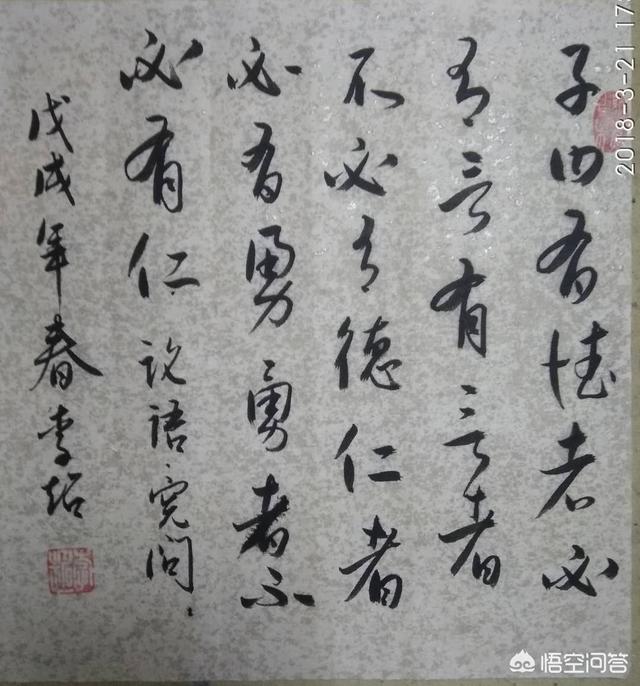 子曰有德者必
有言有言者
不必有德仁者
必有勇勇者不
必有仁 论语宪问
戊戌年春李
2018-3-21 17:
悟空问答